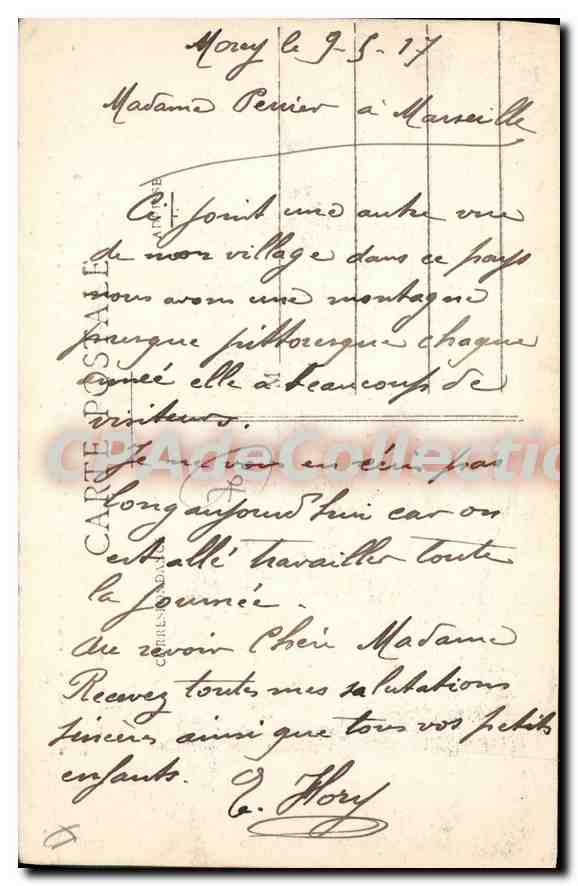 Morey le 9-5-17
Madame Perrier à Marseille
Ci-joint une autre vue
de mon village dans ce pays
nous avons une montagne
presque pittoresque chaque
année elle a beaucoup de
visiteurs.
Je ne vous en écris pas
long aujourd'hui car on
est allé travailler toute
la journée.
Au revoir Chère Madame
Recevez toutes mes salutations
sincères ainsi que tous vos petits
enfants.
E. Flory
CARTE POSTALE
CORRESPONDANCE
ADRESSE
M
CPAdeCollection